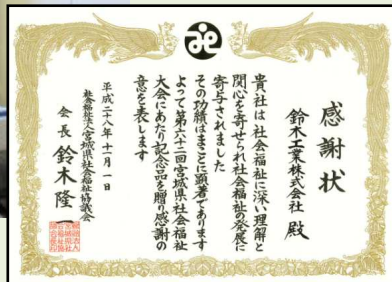 感謝状
鈴木工業株式会社 殿
貴社は社会福祉に深い理解と
関心を寄せられ社会福祉の発展に
寄与されました
その功績はまことに顕著であります
よって第六十二回宮城県社会福祉
大会にあたり記念品を贈り感謝の
意を表します
平成二十八年十一月一日
社会福祉法人宮城県社会福祉協議会
会長 鈴木隆一